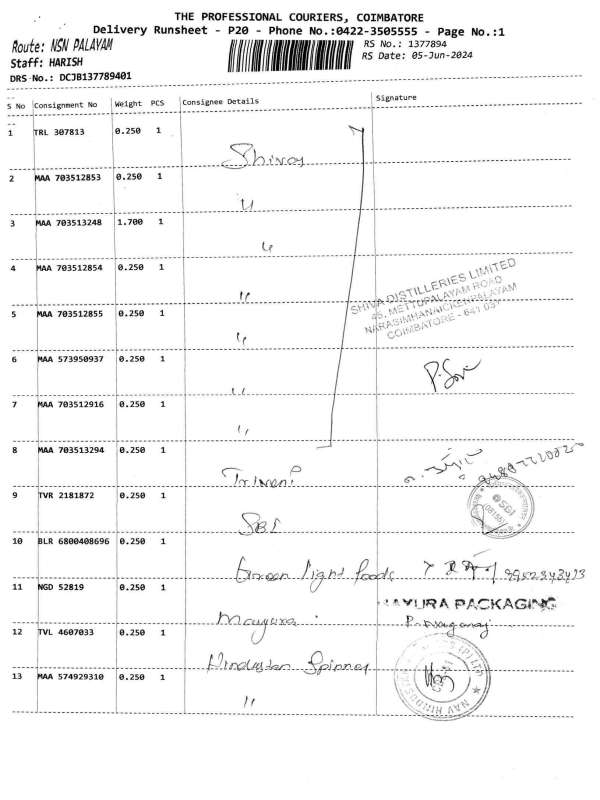 THE PROFESSIONAL COURIERS, COIMBATORE
Delivery Runsheet - P20 - Phone No.:0422-3505555 - Page No.:1
Route: NSN PALAYAM
RS No.: 1377894
Staff: HARISH
RS Date: 05-Jun-2024
DRS No.: DCJB137789401
S No Consignment No Weight PCS Consignee Details Signature
1 TRL 307813 0.250 1
Shiva
2 MAA 703512853 0.250 1
"
3 MAA 703513248 1.700 1
"
4 MAA 703512854 0.250 1
"
5 MAA 703512855 0.250 1
"
SHIVA DISTILLERIES LIMITED
45, METTUPALAYAM ROAD
NARASIMHANNICKENPALAYAM
COIMBATORE - 641 031
6 MAA 573950937 0.250 1
"
7 MAA 703512916 0.250 1
"
8 MAA 703513294 0.250 1
Triveni
9 TVR 2181872 0.250 1
SBI
10 BLR 6800408696 0.250 1
Green light foods
11 NGD 52819 0.250 1
Mayura
MAYURA PACKAGING
P. Nagaraj
12 TVL 4607033 0.250 1
Hindustan Spinner
13 MAA 574929310 0.250 1
"